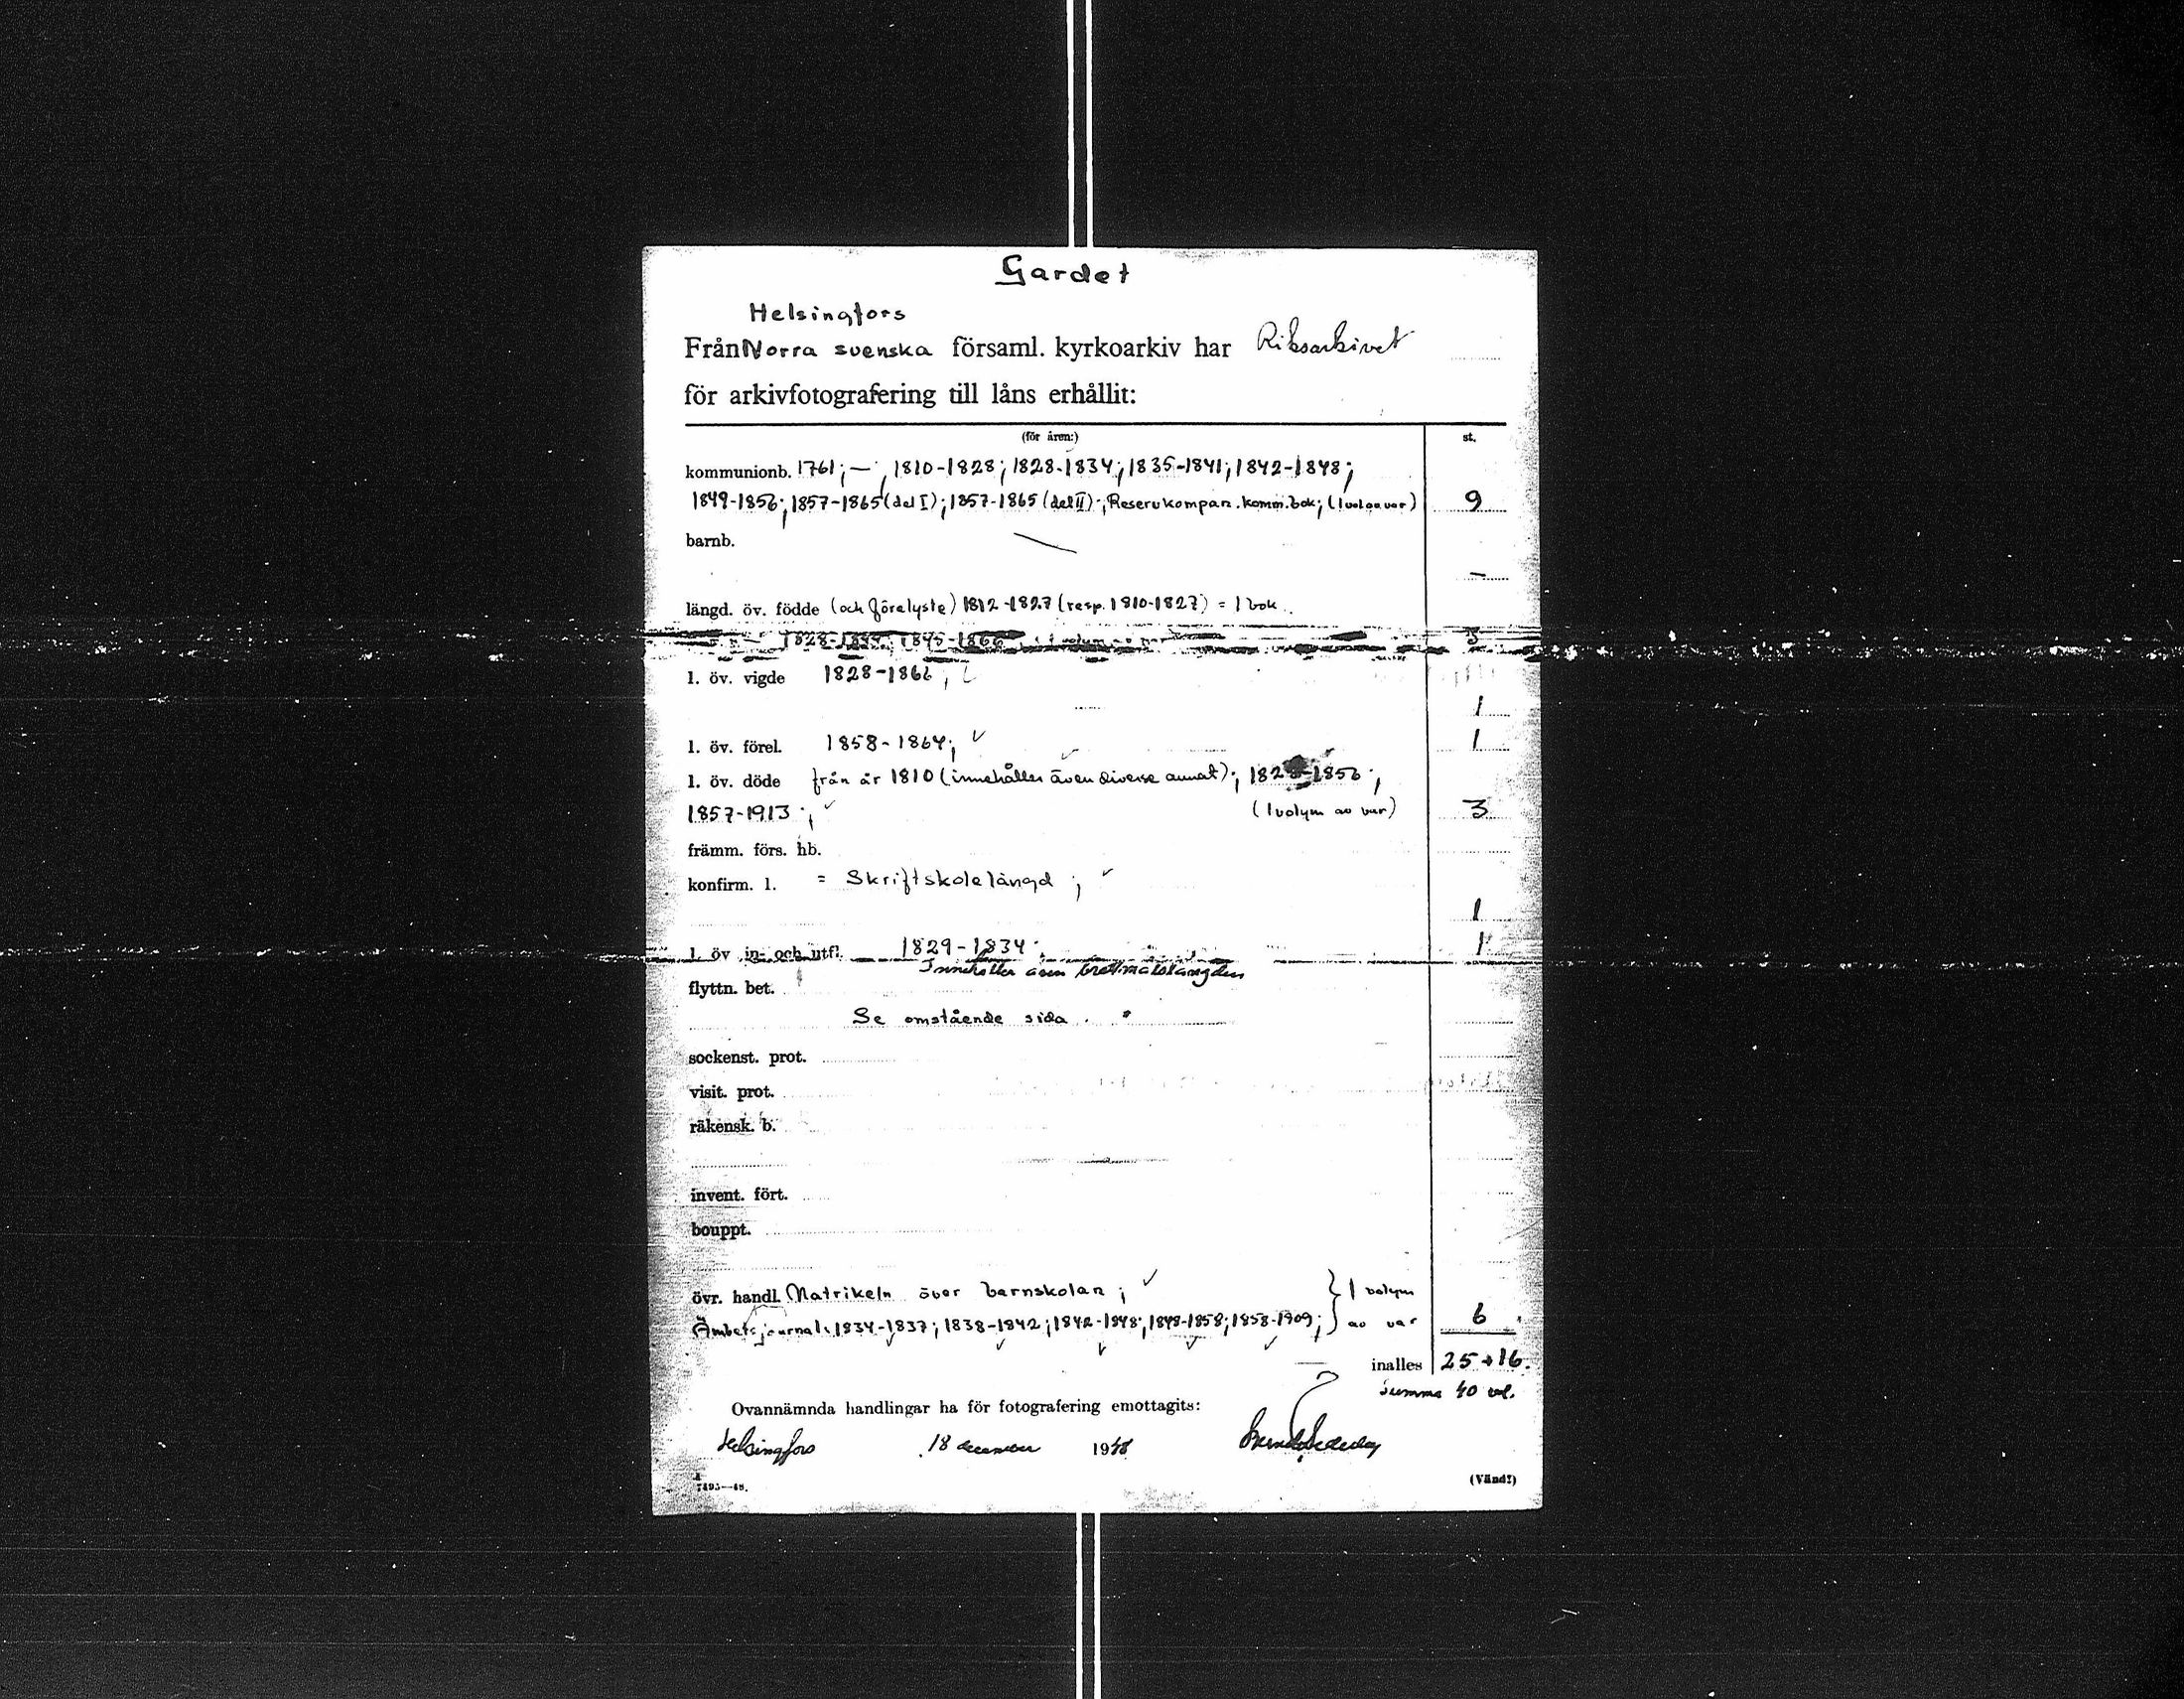 Gardet
Helsingfors
Från Norra svenska församl. kyrkoarkiv har Riksarkivet
för arkivfotografering till låns erhållit:
(för åren:) st.
kommunionb. 1761; — ; 1810-1828; 1828-1834; 1835-1841; 1842-1848;
1849-1856; 1857-1865 (del I); 1857-1865 (del II); Reservkompan. komm.bok; (1 vol av var) 9
barnb. —
längd. öv. födde (och förelyste) 1812-1827 (resp. 1810-1827) = 1 bok
1828-1844; 1845-1866 3
l. öv. vigde 1828-1866;
1
l. öv. förel. 1858-1864; 1
l. öv. döde från år 1810 (innehåller även diverse annat); 1828-1856;
1857-1913; (1 volym av var) 3
främm. förs. hb.
konfirm. l. = Skriftskolelängd;
1
l. öv in- och utfl. 1829-1834. 1
Innehåller även
flyttn. bet.
Se omstående sida.
sockenst. prot.
visit. prot.
räkensk. b.
invent. fört.
bouppt.
övr. handl. Matrikeln över barnskolan; } 1 volym
Ämbetsjournal: 1834-1837; 1838-1842; 1842-1848; 1848-1858; 1858-1909; } av var 6
inalles 25 + 16.
Summa 40 vol.
Ovannämnda handlingar ha för fotografering emottagits:
Helsingfors 18 december 1948
7495—48. (Vänd!)